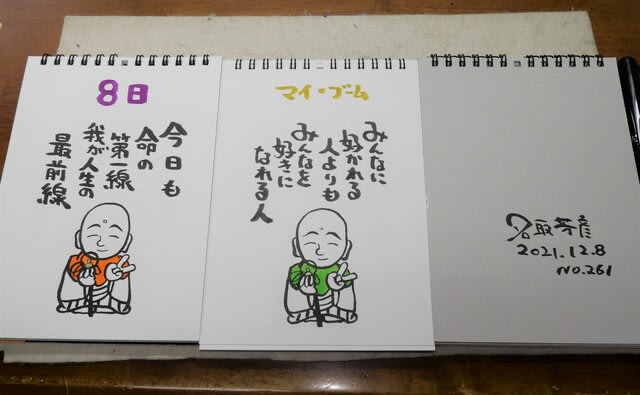 8日
今日も
命の
第一線
我が人生の
最前線
マイ・ブーム
みんなに
好かれる
人よりも
みんなを
好きに
なれる人
名取芳彦
2021.12.8
NO.261